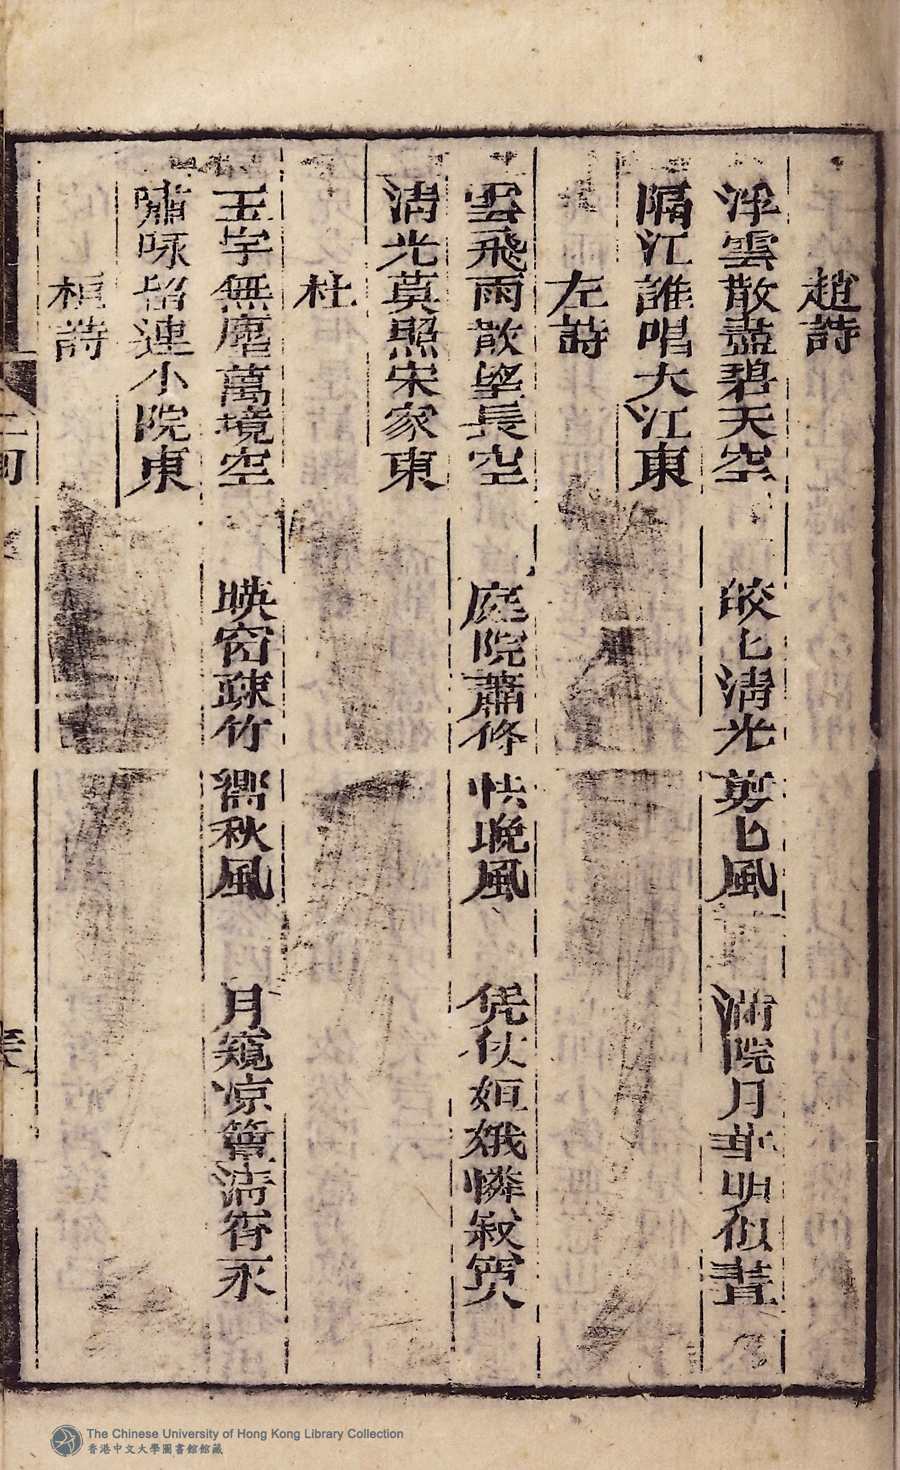 趙詩
浮雲散盡碧天空 皎匕清光剪匕風 滿院月華明似晝
隔江誰唱大江東
左詩
雲飛雨散望長空 庭院蕭條怯晚風 凭仗姮娥憐寂寞
清光莫照宋家東
杜
玉宇無塵萬境空 暎窗疎竹嚮秋風 月窺凉簟清宵永
嘯咏留連小院東
桓詩
The Chinese University of Hong Kong Library Collection
香港中文大學圖書館館藏